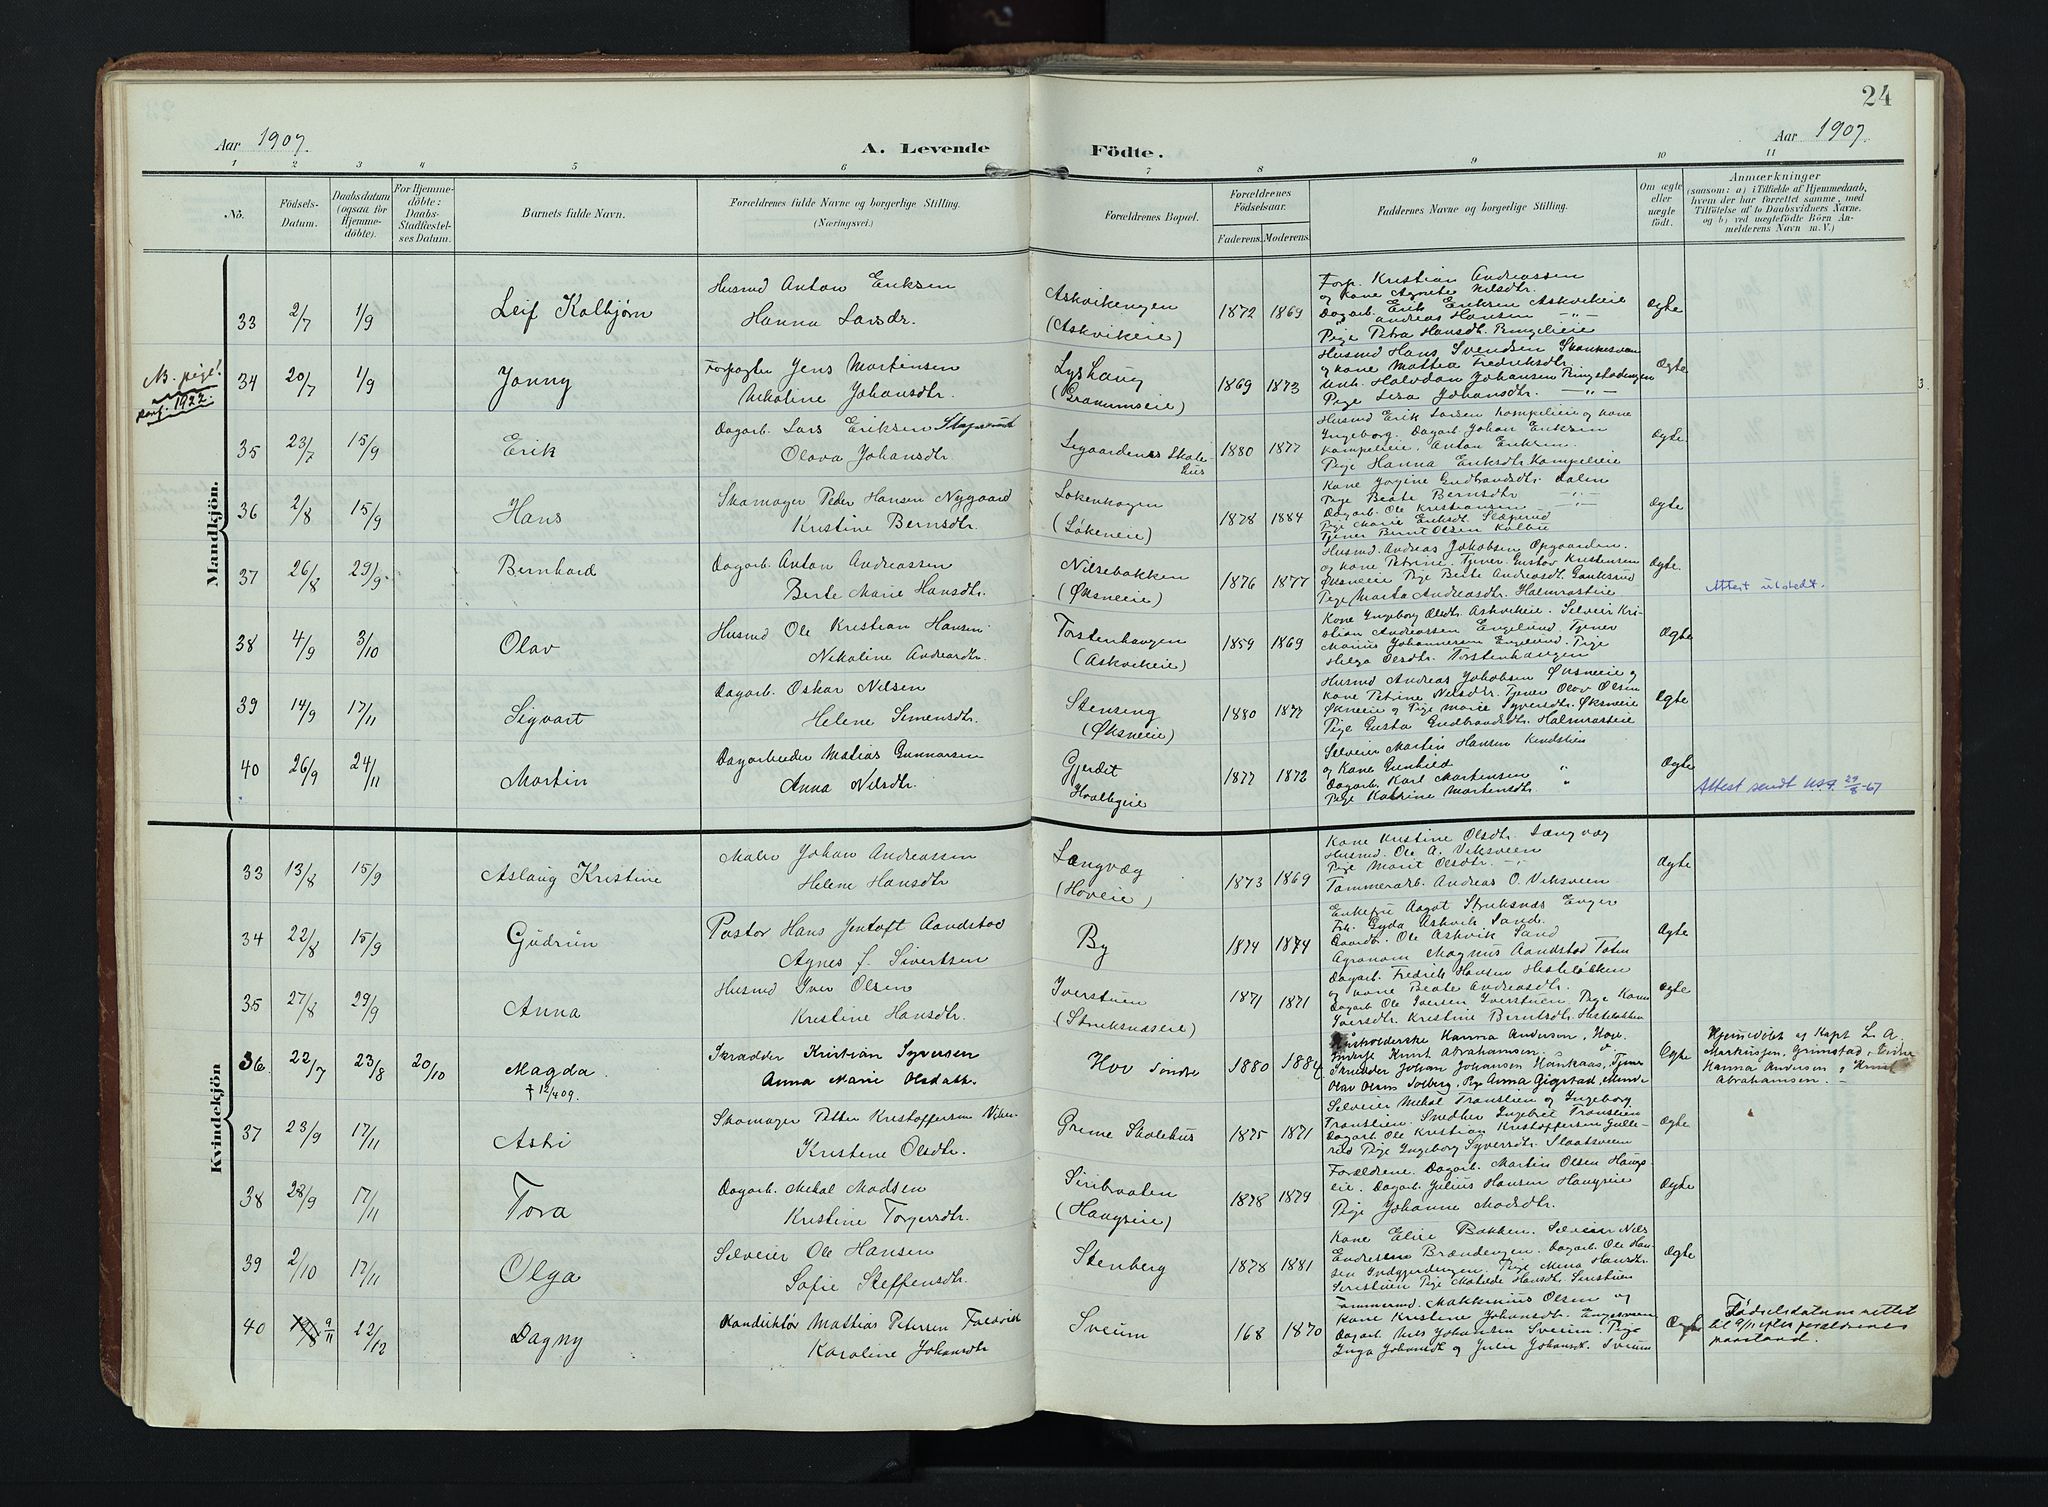 24
Aar 1907.
A. Levende Födte.
Aar 1907.
1 2 3 4 5 6 7 8 9 10 11
No.
Födsels-Datum.
Daabsdatum (ogsaa for Hjemme-döbte).
For Hjemme-döbte: Daabs-Stadfæstel-ses Datum.
Barnets fulde Navn.
Forældrenes fulde Navne og borgerlige Stilling.
(Næringsvei.)
Forældrenes Bopæl.
Forældrenes Födselsaar.
Faderens. Moderens.
Faddernes Navne og borgerlige Stilling.
Om ægte eller uægte födt.
Anmærkninger
(saasom: a) i Tilfælde af Hjemmedaab,
hvem der har forrettet samme, med
Tilföielse af to Daabsvidners Navne.
og b) ved uægtefödte Börn An-
melderens Navn m. V.)
Mandkjön.
33 2/7 1/9 Leif Kolbjørn
Husmd Anton Eriksen
Hanna Larsdr.
Askvikengen
(Askvikeie)
1872 1869
Forp. Kristian Andreassen
og Kone Agnete Nilsdtr.
Dagarb. Erik Eriksen Askvikeie
Andreas Hansen -"-
Pige Petra Hansdtr. Ringelieie
Ægte
NB. pige!
konf. 1922.
34 20/7 1/9 Jonny
Forpagter Jens Mortensen
Nikoline Johansdtr.
Lyshaug
(Granumseie)
1869 1873
Husmd Hans Svendsen
og Kone Mathea Fredriksdtr.
Unk. Halvdan Johansen
Pige Lisa Johansdtr.
Ægte
35 23/7 15/9 Erik
Dagarb. Lars Eriksen
Olava Johansdtr.
Skolehus
1880 1877
Husmd Erik Larsen Kompelieie og Kone
Ingeborg. Dagarb. Johan Eriksen
Kompelieie. Anton Eriksen.
Pige Hanna Eriksdtr. Kompelieie
Ægte
36 2/8 15/9 Hans
Skomager Peder Hansen Nygaard
Kristine Bernsdtr.
Løkenhagen
(Løkeneie)
1878 1884
Kone Jogine Gudbrandsdtr. Dalen
Pige Beate Bernsdtr -"-
Dagarb. Ole Kristiansen -"-
Pige Marie Eriksdt.
Tjener Bernt Olsen
Ægte
37 26/8 29/9 Bernhard
Dagarb. Anton Andreassen
Berte Marie Hansdtr.
Nilsebakken
(Øksneeie)
1876 1877
Husmd. Andreas Jakobsen Opgaarden.
og Kone Petrine. Tjener Gustav Kristensen
Øksneeie Pige Berte Andreasdt.
Pige Marta Andreasdtr. Halmrasteie
Ægte.
Attest utstedt.
38 4/9 3/10 Olav
Husmd Ole Kristian Hansen
Nikoline Andreasdtr.
Torstenhaugen
(Askvikeie)
1859 1869
Kone Ingeborg Olsdtr. Askvikeie. Selveier Kri-
stian Andreassen Engelund Tjener
Marius Johannessen Engelund. Pige
Helga Olsdtr. Torstenhaugen
Ægte
39 14/9 17/11 Sigvart
Dagarb. Oskar Nilsen
Helene Simensdtr.
Stensing
(Øksneeie)
1880 1877
Husmd Andreas Jakobsen Øksneeie og
Kone Petrine Nilsdtr. Tjener Olav Olsen
Øksneeie og Pige Marie Syversdtr. Øksneeie
Pige Gusta Gudbrandsdtr. Halmrasteie
Ægte
40 26/9 24/11 Martin
Dagarbeider Matias Gunnarsen
Anna Nilsdtr.
Gjerdet
1877 1872
Selveier Martin Hansen
og Kone Gunhild "
Dagarb. Karl Mortensen "
Pige Katrine Mortensdtr "
Ægte
Attest sendt 29/8-67
Kvindekjön
33 13/8 15/9 Aslaug Kristine
Maler Johan Andreassen
Helene Hansdtr
Længvæg
(Hoveie)
1873 1869
Kone Kristine Olsdtr. Længvæg
Husmd. Ole A. Viksveen
Pige Marit Olsdtr. -"-
Tømmerarb. Andreas O. Viksveen
Ægte
34 22/8 15/9 Gudrun
Pastor Hans Jentoft Aandstad
Agnes f. Sivertsen
By
1874 1874
Enkefru Aagot Struksnæs Enger
Frk. Gyda Askvik Sand.
Gaardbr. Ole Askvik Sand
Agronom Magnus Aandstad Toten
Ægte
35 27/8 29/9 Anna
Husmd Iver Olsen
Kristine Hansdtr.
Iverstuen
(Struksnæseie)
1871 1871
Dagarb. Fredrik Hansen Hesteløkken
og Kone Beate Andreasdtr.
Dagarb Ole Iversen Iverstuen. Pige Karen
Iversdtr. Kristine Berntsdtr. Hesteløkken
Ægte
36. 22/7 23/8 20/10 Magda.
† 12/4 09.
Skrædder Kristian Syversen
Anna Marie Olsdatter.
Hov Søndre
1880 1884
Husholderske Hanna Andersen, Hov.
Knut Abrahamsen.
Skrædder Johan Johansen Haukaas, Tjener
Olav Olsen Solberg, Pige Anna Gigstad,
Ægte
Hjemdøbt af Kapt. L. A.
Markussen, Grimstad,
Hanna Andersen og Knut
Abrahamsen.
37 23/9 17/11 Asbi
Skomager Petter Kristoffersen
Kristine Olsdtr.
Greme Skolehus
1875 1871
Selveier Mikal Transtien og Ingeborg
Transtien. Snedker Ingebret Transtien
Dagarb. Ole Kristian Kristoffersen Gulle-
rud Pige Ingeborg Syversdtr. Slaatsveen
Ægte
38 28/9 17/11 Tora
Dagarb. Mikal Madsen
Kristine Torgersdtr.
Siribraaten
(Haugseie)
1878 1879
Forældrene. Dagarb. Martin Olsen Haugs-
eie. Dagarb. Julius Hansen Haugseie
Pige Johanne Madsdtr.
Ægte
39 2/10 17/11 Olga
Selveier Ole Hansen
Sofie Steffensdtr.
Stenberg
1878 1881
Kone Elise Bakken. Selveier Nils
Endresen Brændengen. Dagarb. Ole Han-
sen Indgjerdingen. Pige Mina Hansdtr.
Siristuen Pige Matilde Hansdtr. Siristuen
Ægte
40 9/11 22/12 Dagny
Konduktør Mathias Petersen
Karoline Johansdtr
Sveum
168 1870
Tømmermd. Makkinius Olsen og
Kone Kristine Johansdtr. Engesveen
Dagarb. Nils Johansen Sveum. Pige
Inga Johansdt og Julie Johansdt. Sveum
Ægte
Fødselsdatum rettet
til 9/11 efter forældrenes
paastand.